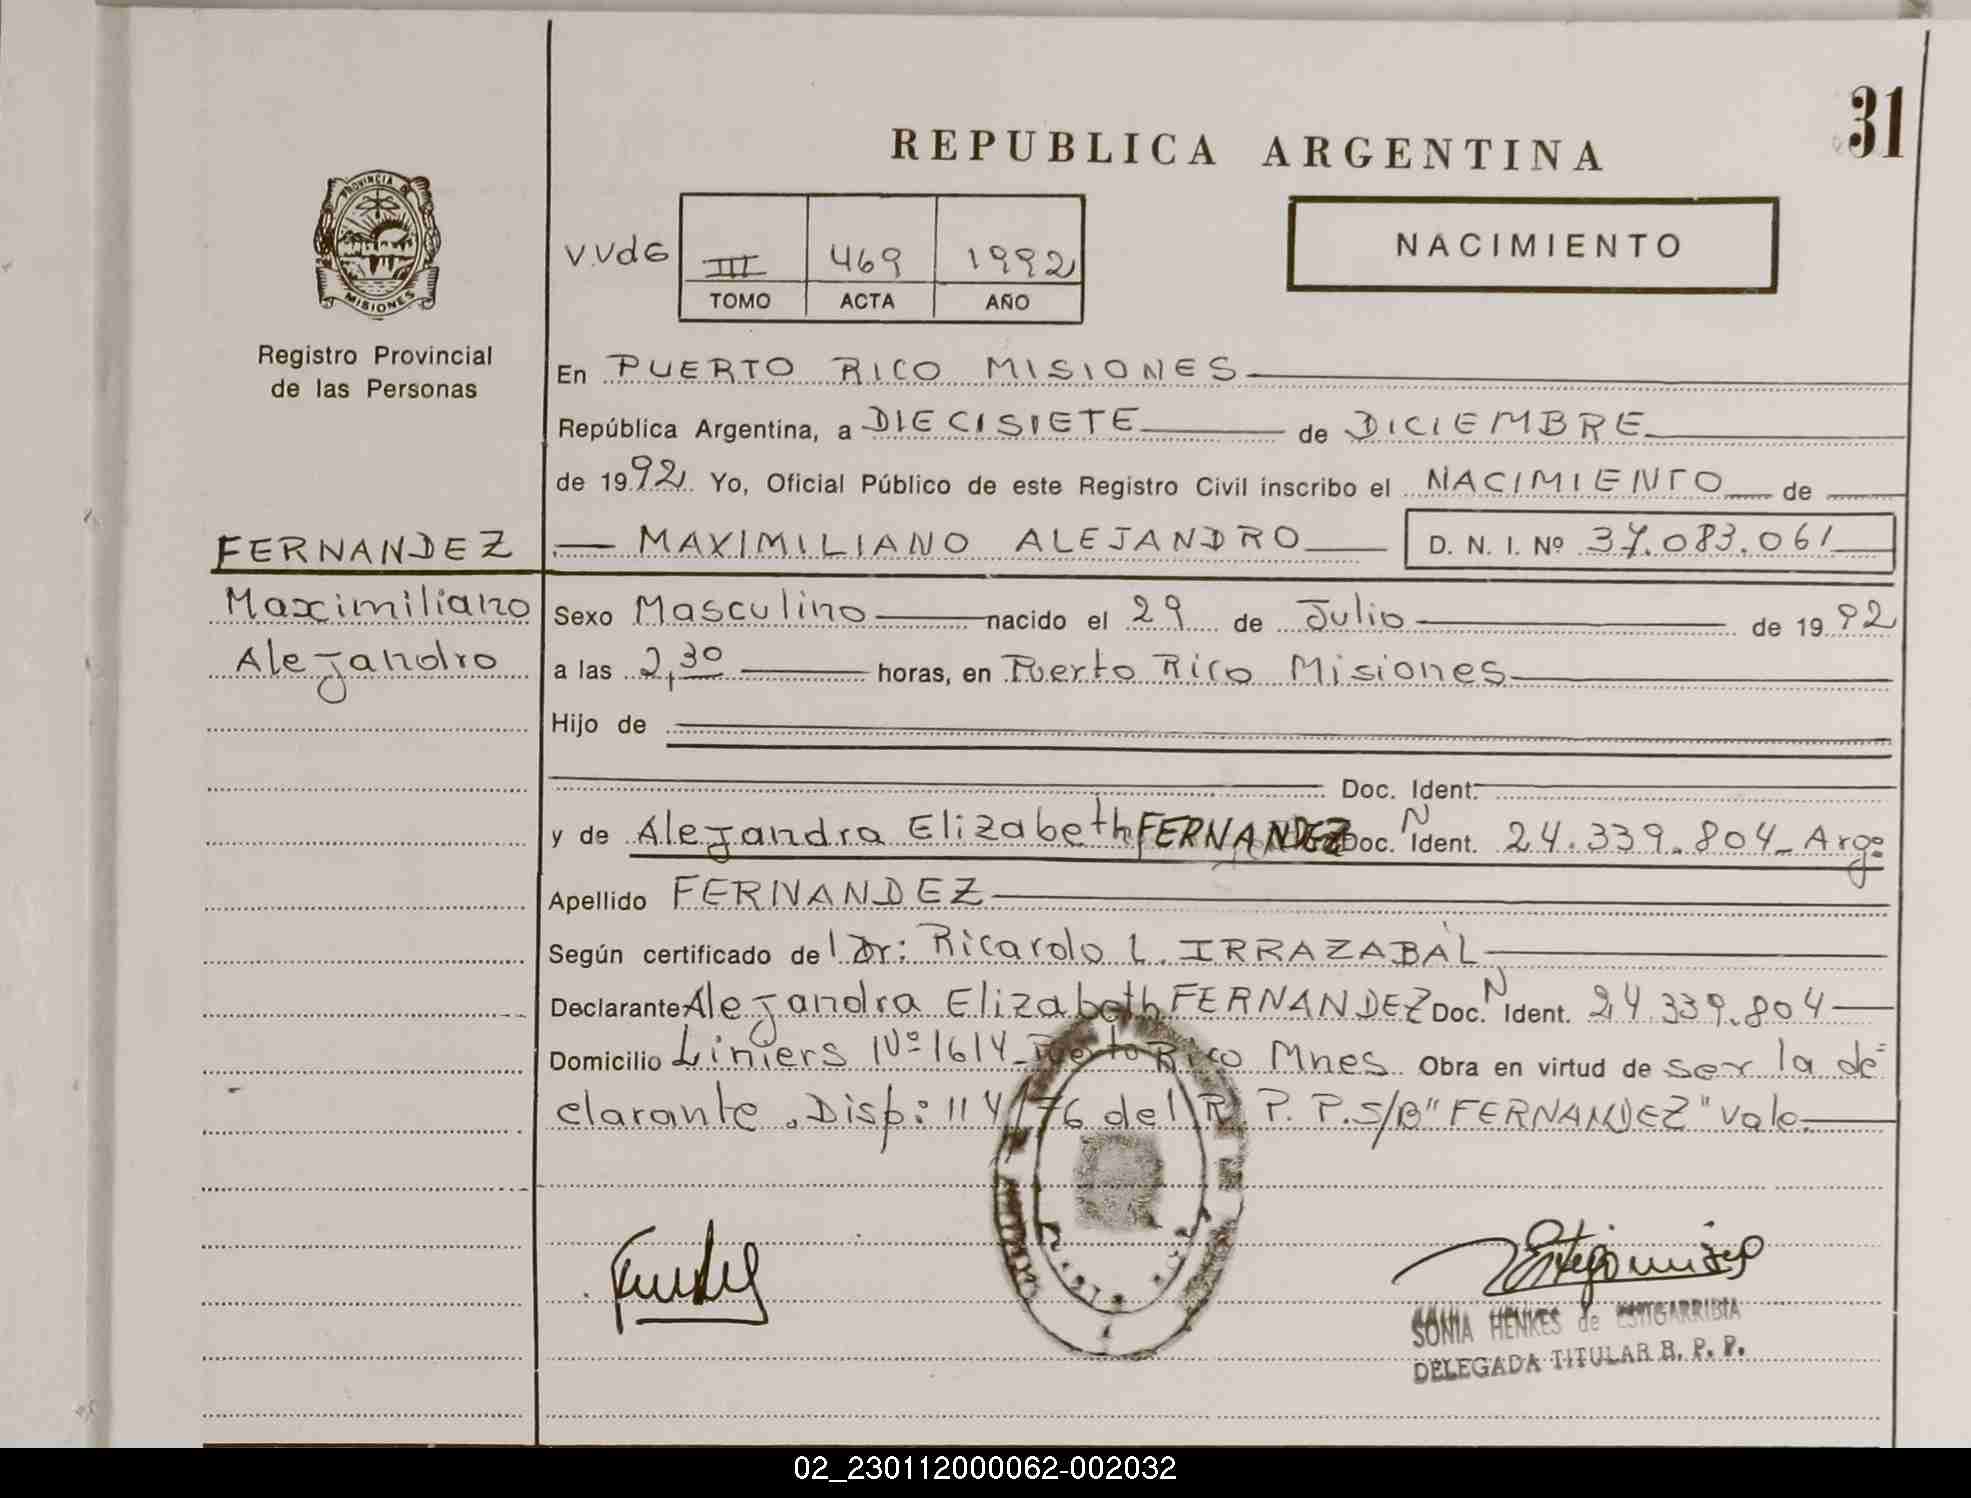 31
REPUBLICA ARGENTINA
PROVINCIA DE
MISIONES
Registro Provincial
de las Personas
V.VdG III 469 1992
TOMO ACTA AÑO
NACIMIENTO
En PUERTO RICO MISIONES
República Argentina, a DIECISIETE de DICIEMBRE
de 1992 Yo, Oficial Público de este Registro Civil inscribo el NACIMIENTO de
FERNANDEZ MAXIMILIANO ALEJANDRO D. N. I. Nº 37.083.061
Maximiliano Sexo Masculino nacido el 29 de Julio de 1992
Alejandro a las 2,30 horas, en Puerto Rico Misiones
Hijo de
Doc. Ident.
y de Alejandra Elizabeth FERNANDEZ Doc. N Ident. 24.339.804_ Argº
Apellido FERNANDEZ
Según certificado del Dr: Ricardo L. IRRAZABAL
Declarante Alejandra Elizabeth FERNANDEZ Doc. N Ident. 24.339.804
Domicilio Liniers Nº 1614_Puerto Rico Mnes. Obra en virtud de ser la de=
clarante. Disp: 114/76 del R. P. P. S/B "FERNANDEZ" Vale.
SONIA HENKES de ESTIGARRIBIA
DELEGADA TITULAR R. P. P.
02_230112000062-002032